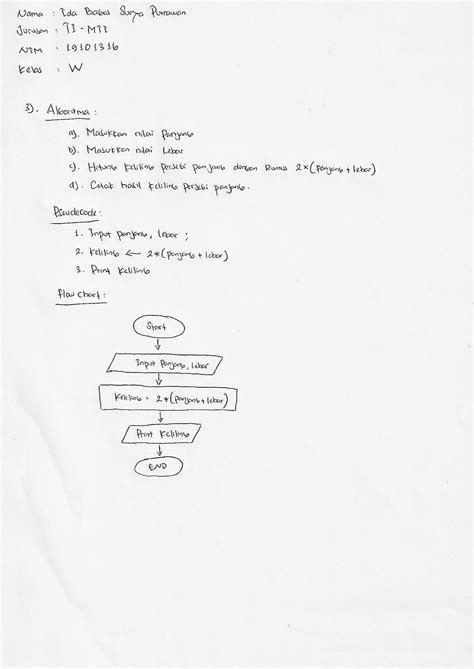 Nama : Ida Bagus Surya Purnawan
Jurusan : TI - MTI
NIM : 19101316
Kelas : W
3). Algoritma :
a). Masukkan nilai Panjang
b). Masukkan nilai Lebar
c). Hitung Keliling Persegi panjang dengan Rumus 2×(panjang + lebar)
d). Cetak hasil Keliling Persegi panjang.
Pseudecode :
1. Input panjang, lebar ;
2. Keliling ← 2*(panjang + lebar)
3. Print Keliling
Flow Chart :
Start
Input Panjang, lebar
Keliling = 2*(panjang + lebar)
Print Keliling
END